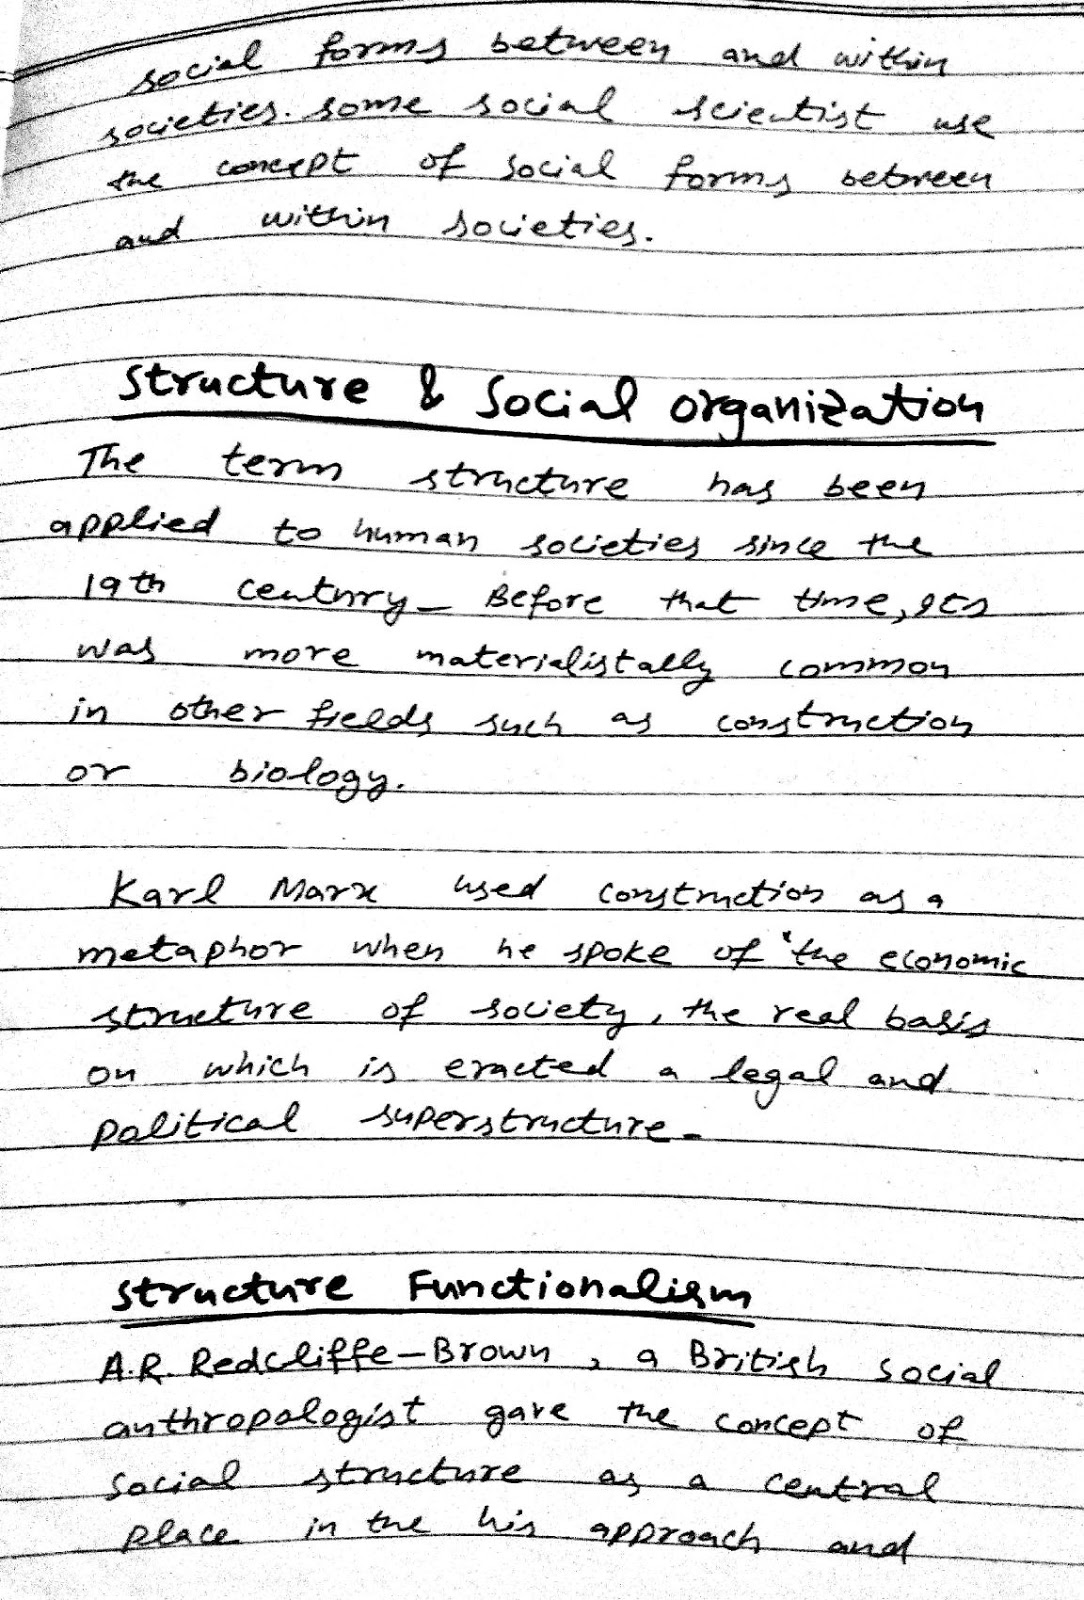 social forms between and within
societies. some social scientist use
the concept of social forms between
and within societies.
structure & social organization
The term structure has been
applied to human societies since the
19th century_ Before that time, Its
was more materialistally common
in other fields such as construction
or biology.
Karl Marx used construction as a
metaphor when he spoke of "the economic
structure of society, the real basis
on which is eracted a legal and
political superstructure_
structure Functionalism
A.R. Redcliffe-Brown, a British social
anthropologist gave the concept of
social structure as a central
place in the his approach and